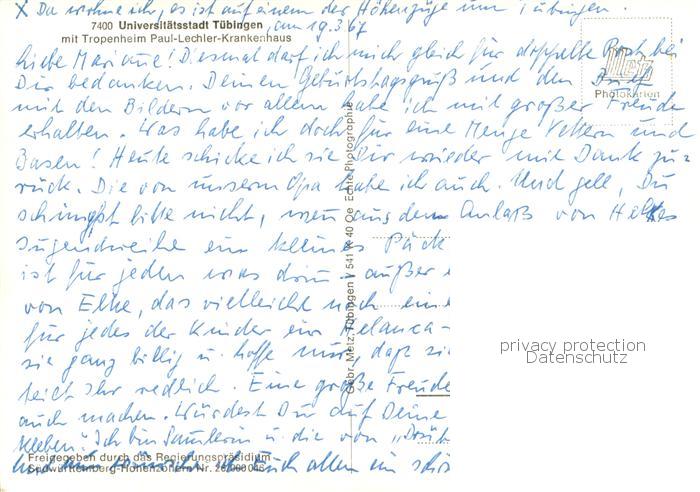 x Da wohne ich, es ist auf einem der Höhenzüge um Tübingen.
7400 Universitätsstadt Tübingen
mit Tropenheim Paul-Lechler-Krankenhaus
am 19.3.67
Liebe Marianne! Diesmal darf ich mich gleich für doppelte Post bei
Dir bedanken. Deinen Geburtstagsgruß und den Brief
mit den Bildern vor allem habe ich mit großer Freude
erhalten. Was habe ich doch für eine Menge Vettern und
Basen! Heute schicke ich sie Dir wieder mit Dank zu-
rück. Die von unserm Opa habe ich auch. Und gell, Du
schimpfst bitte nicht, wenn aus dem Anlaß von
Jugendweihe ein kleines Päck
ist für jeden was drin - außer
von Elke, das vielleicht noch eine
für jedes der Kinder ein Helanca-
sie ganz billig u. hoffe nur, daß sie
teilt Ihr redlich. Eine große Freude
auch machen. Würdest Du auf Deine
kleben? Ich bin Sammlerin u. die von "
ich Euch allen ein schö
Metz
Photokarten
Gebr. Metz, Tübingen V 541 K 40 Oe Echte Photographie
Freigegeben durch das Regierungspräsidium
Südwürttemberg-Hohenzollern Nr.
privacy protection
Datenschutz